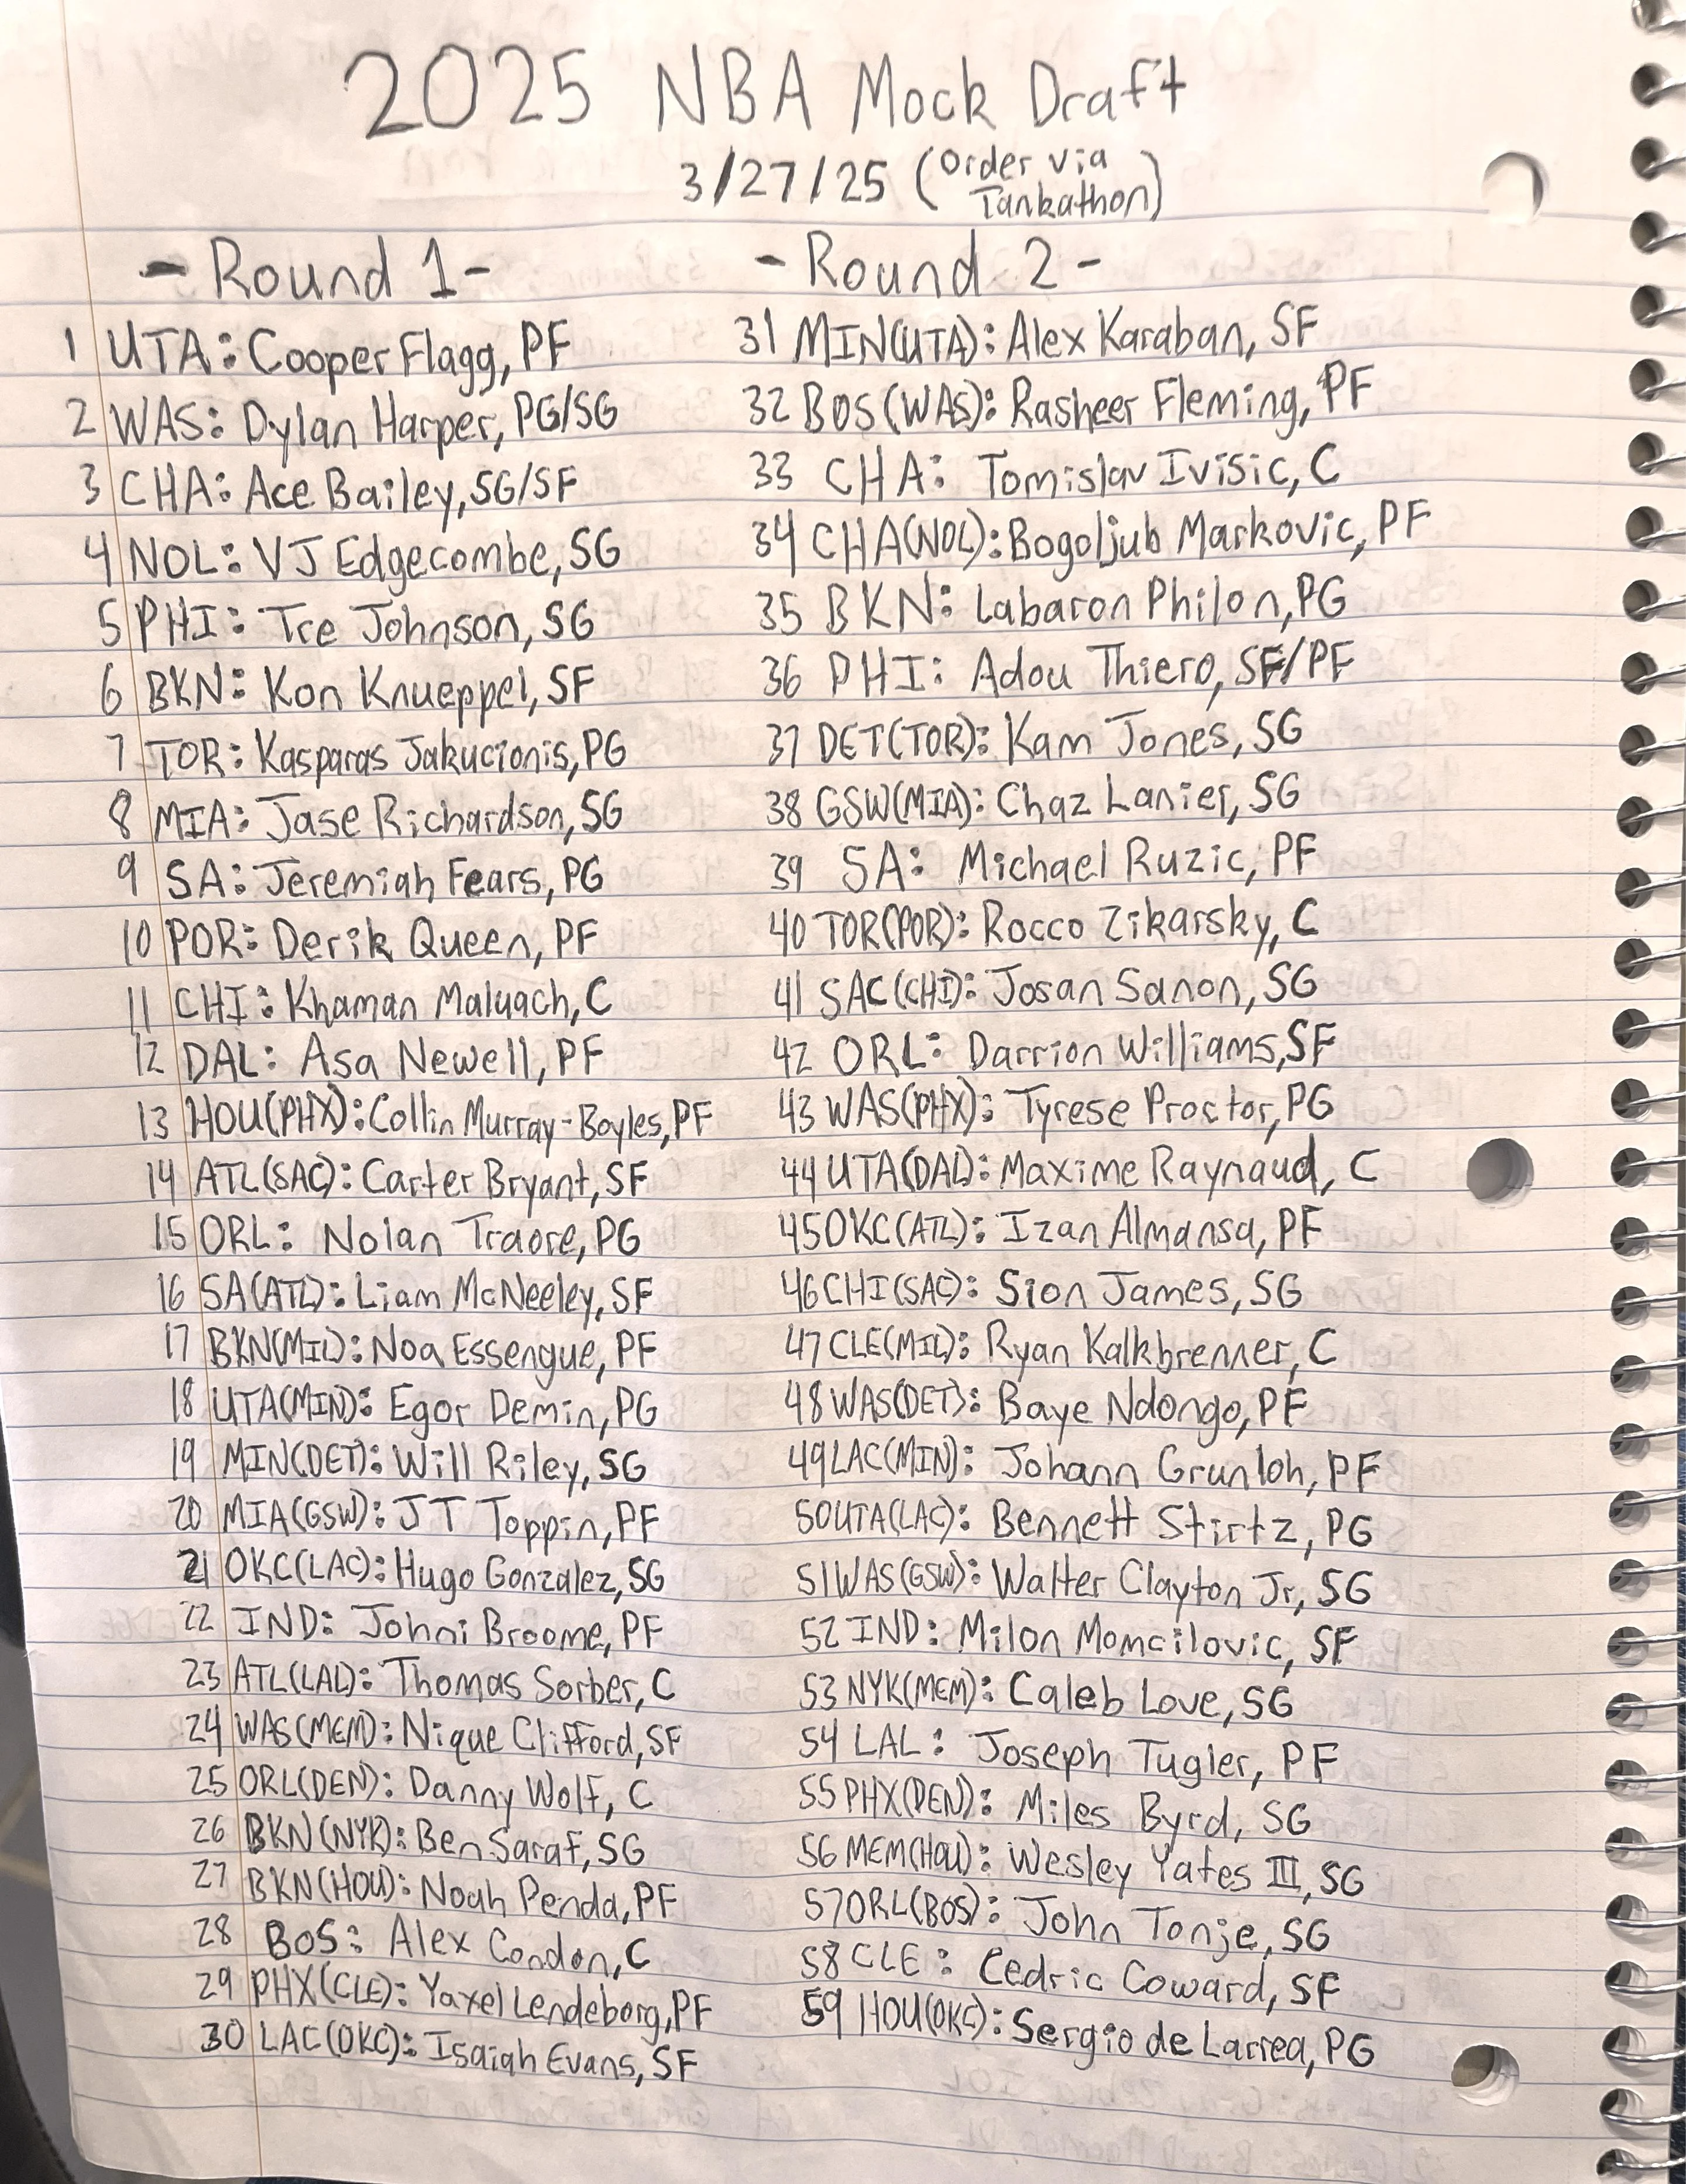 2025 NBA Mock Draft
3/27/25 (Order via
Tankathon)
- Round 1 -
1 UTA: Cooper Flagg, PF
2 WAS: Dylan Harper, PG/SG
3 CHA: Ace Bailey, SG/SF
4 NOL: VJ Edgecombe, SG
5 PHI: Tre Johnson, SG
6 BKN: Kon Knueppel, SF
7 TOR: Kasparas Jakucionis, PG
8 MIA: Jase Richardson, SG
9 SA: Jeremiah Fears, PG
10 POR: Derik Queen, PF
11 CHI: Khaman Maluach, C
12 DAL: Asa Newell, PF
13 HOU(PHX): Collin Murray-Boyles, PF
14 ATL(SAC): Carter Bryant, SF
15 ORL: Nolan Traore, PG
16 SA(ATL): Liam McNeeley, SF
17 BKN(MIL): Noa Essengue, PF
18 UTA(MIN): Egor Demin, PG
19 MIN(DET): Will Riley, SG
20 MIA(GSW): JT Toppin, PF
21 OKC(LAC): Hugo Gonzalez, SG
22 IND: Johni Broome, PF
23 ATL(LAL): Thomas Sorber, C
24 WAS(MEM): Nique Clifford, SF
25 ORL(DEN): Danny Wolf, C
26 BKN(NYK): Ben Saraf, SG
27 BKN(HOU): Noah Penda, PF
28 BOS: Alex Condon, C
29 PHX(CLE): Yaxel Lendeborg, PF
30 LAC(OKC): Isaiah Evans, SF
- Round 2 -
31 MIN(UTA): Alex Karaban, SF
32 BOS(WAS): Rasheer Fleming, PF
33 CHA: Tomislav Ivisic, C
34 CHA(NOL): Bogoljub Markovic, PF
35 BKN: Labaron Philon, PG
36 PHI: Adou Thiero, SF/PF
37 DET(TOR): Kam Jones, SG
38 GSW(MIA): Chaz Lanier, SG
39 SA: Michael Ruzic, PF
40 TOR(POR): Rocco Zikarsky, C
41 SAC(CHI): Josan Sanon, SG
42 ORL: Darrion Williams, SF
43 WAS(PHX): Tyrese Proctor, PG
44 UTA(DAL): Maxime Raynaud, C
45 OKC(ATL): Izan Almansa, PF
46 CHI(SAC): Sion James, SG
47 CLE(MIL): Ryan Kalkbrenner, C
48 WAS(DET): Baye Ndongo, PF
49 LAC(MIN): Johann Grunloh, PF
50 UTA(LAC): Bennett Stirtz, PG
51 WAS(GSW): Walter Clayton Jr, SG
52 IND: Milon Momcilovic, SF
53 NYK(MEM): Caleb Love, SG
54 LAL: Joseph Tugler, PF
55 PHX(DEN): Miles Byrd, SG
56 MEM(HOU): Wesley Yates III, SG
57 ORL(BOS): John Tonje, SG
58 CLE: Cedric Coward, SF
59 HOU(OKC): Sergio de Larrea, PG